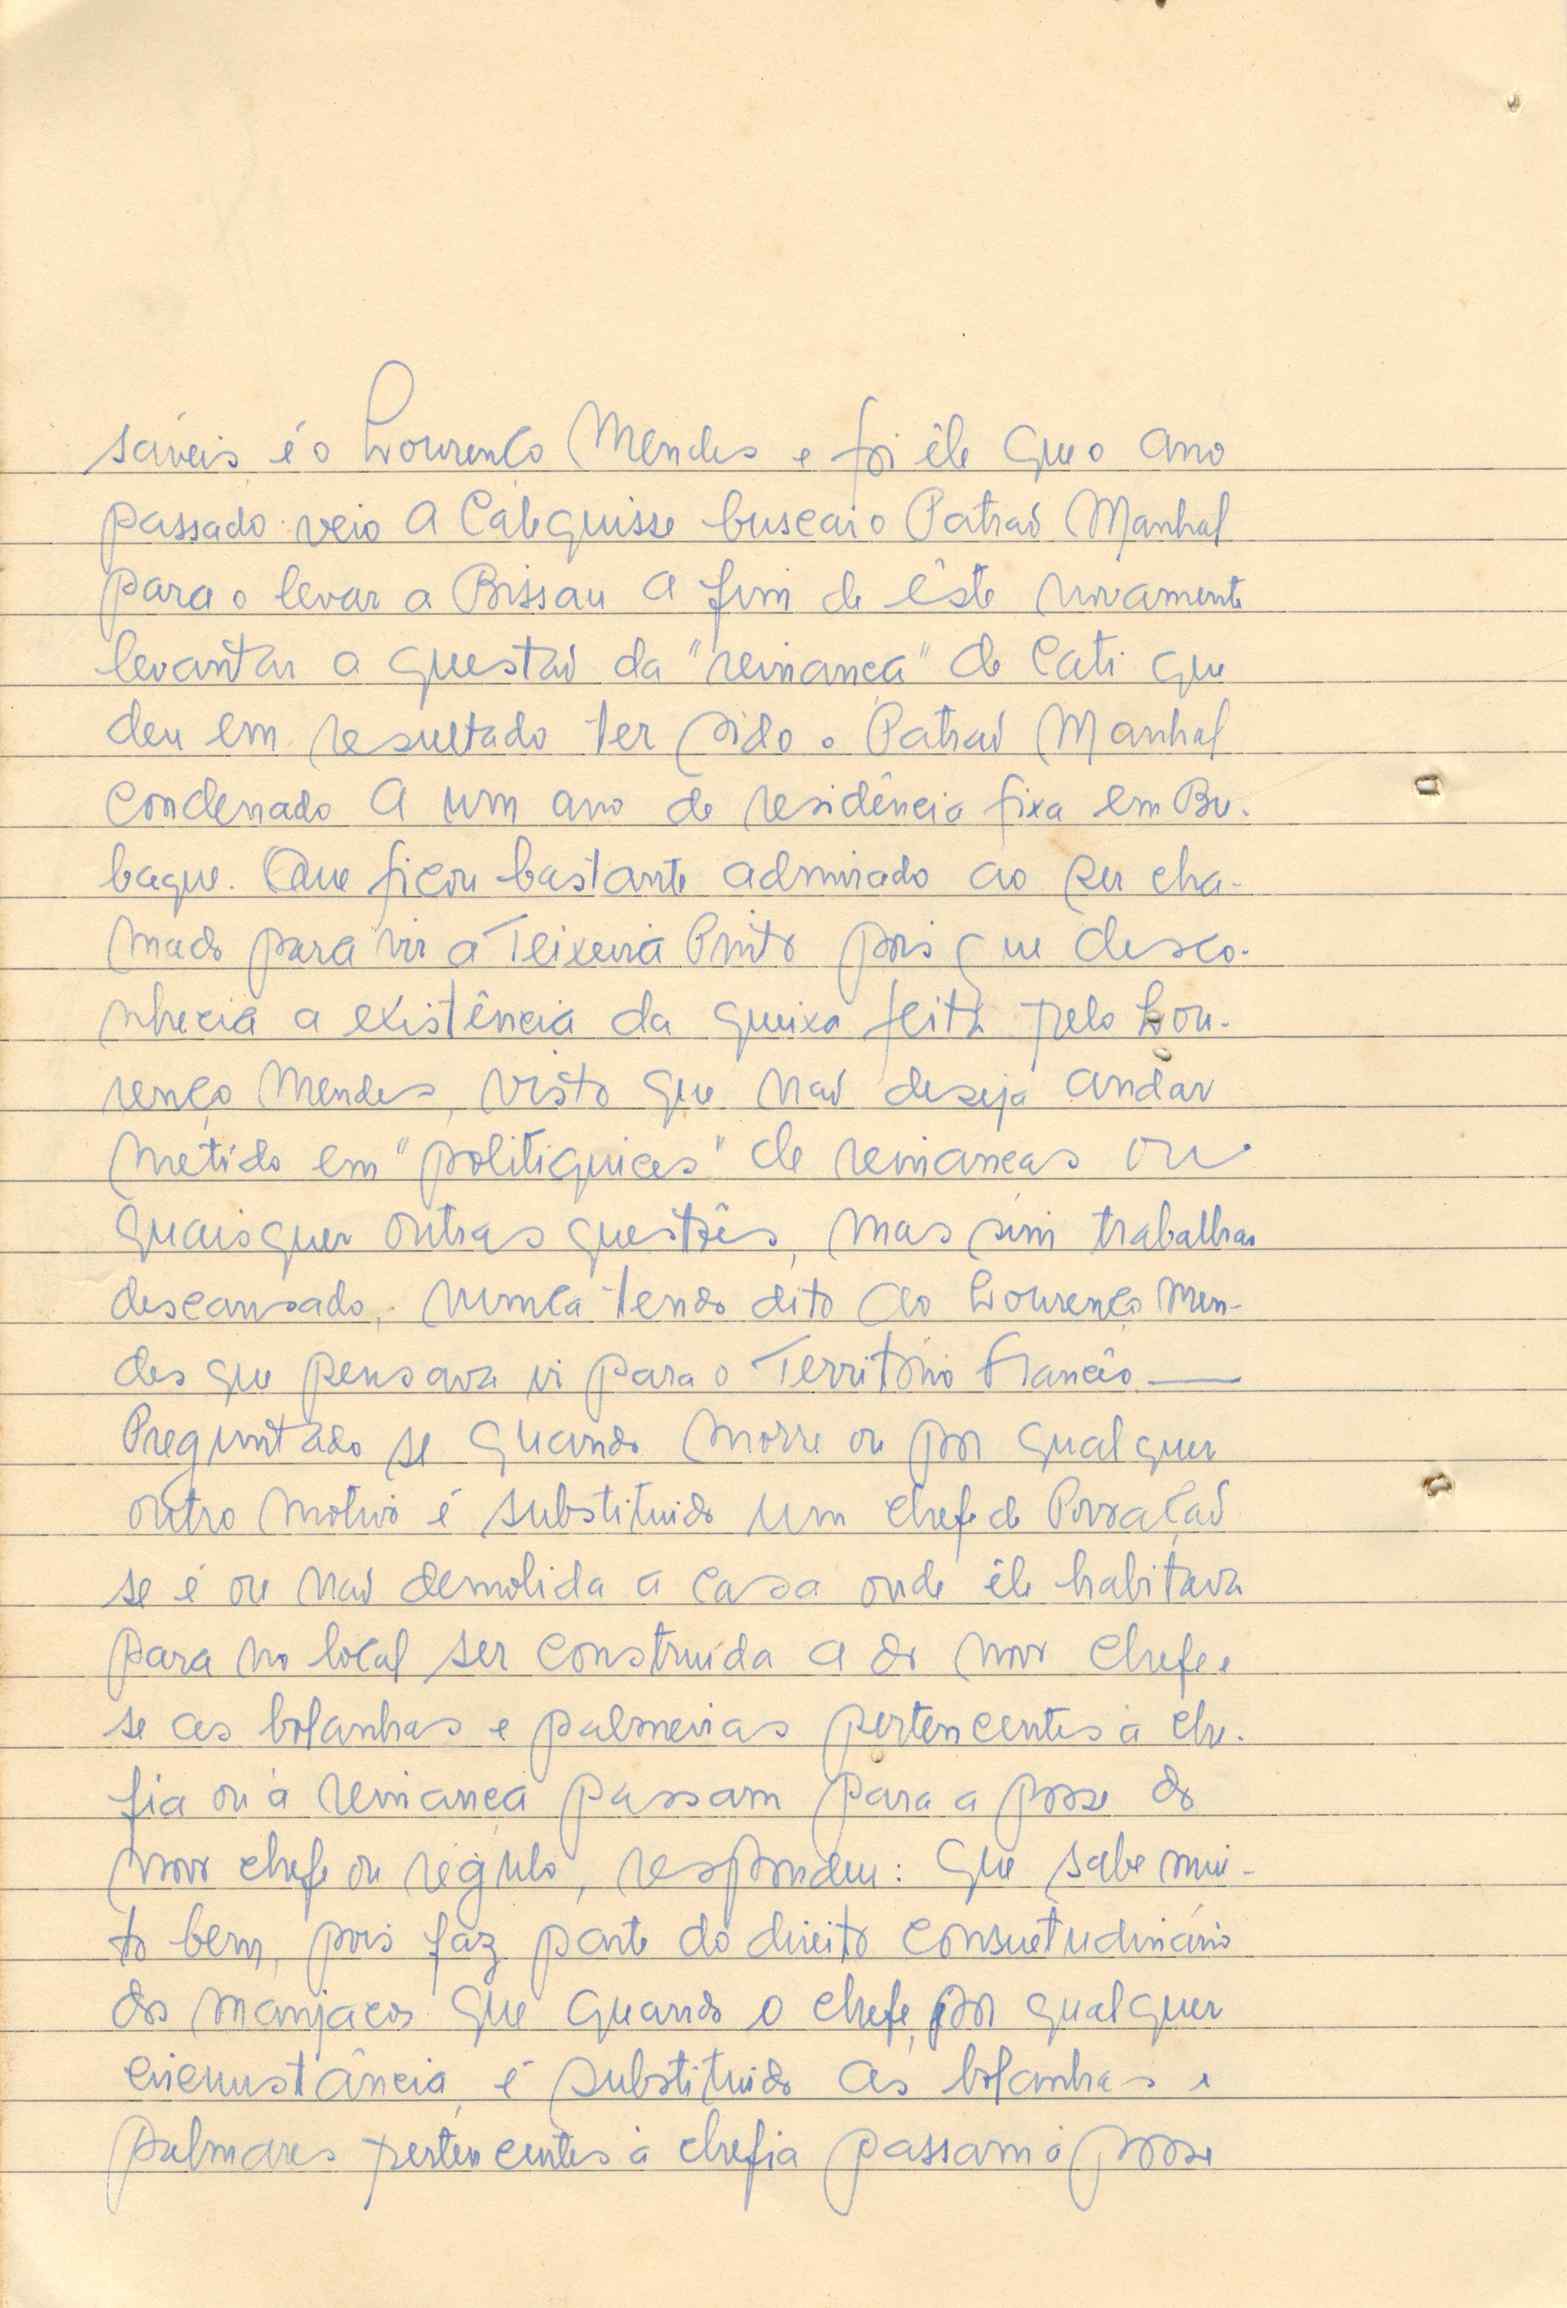 sáveis é o Lourenço Mendes e foi êle que o ano
passado veio a Calequisse buscar o Patraõ Manhal
para o levar a Bissau a fim de êste novamente
levantar a questaõ da "reinança" de Cati que
deu em resultado ter sido o Patraõ Manhal
condenado a um ano de residência fixa em Bu-
baque. Que ficou bastante admirado ao ser cha-
mado para vir a Teixeira Pinto pois que desco-
nhecia a existência da queixa feita pelo Lou-
renço Mendes, visto que naõ deseja andar
metido em "politiquices" de reinanças ou
quaisquer outras questões, mas sim trabalhar
descansado, nunca tendo dito ao Lourenço Men-
des que pensava ir para o Território Francês —
Preguntado se quando morre ou por qualquer
outro motivo é substituido um chefe de Povoaçaõ
se é ou naõ demolida a casa onde êle habitava
para no local ser construída a do novo chefe e
se as bolanhas e palmeiras pertencentes à che-
fia ou à reinança passam para a posse do
novo chefe ou régulo, respondeu: Que sabe mui-
to bem, pois faz parte do direito consuetudinário
dos manjacos que quando o chefe, por qualquer
circunstância, é substituido as bolanhas e
palmares pertencentes à chefia passam à posse